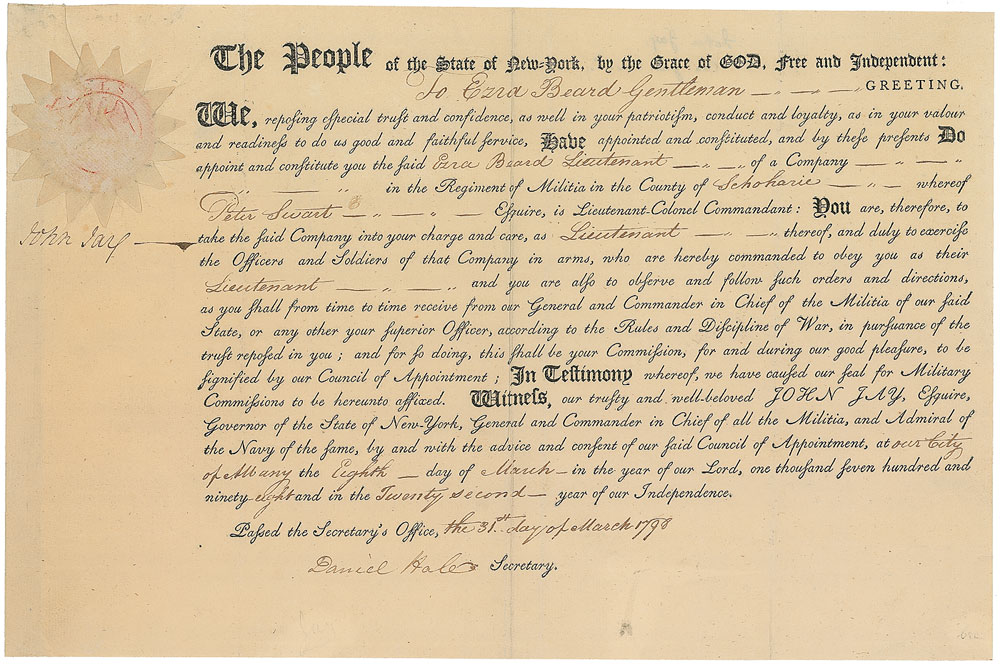 The People of the State of New-York, by the Grace of GOD, Free and Independent:
To Ezra Beard Gentleman — „ — „ — GREETING.
We, repoſing eſpecial truſt and confidence, as well in your patriotiſm, conduct and loyalty, as in your valour
and readineſs to do us good and faithful ſervice, Have appointed and conſtituted, and by theſe preſents Do
appoint and conſtitute you the ſaid Ezra Beard Lieutenant — „ — „ of a Company — „ — „
„ — „ in the Regiment of Militia in the County of Schoharie — „ — whereof
Peter Swart — „ — „ — Eſquire, is Lieutenant-Colonel Commandant: You are, therefore, to
John Jay — take the ſaid Company into your charge and care, as Lieutenant — „ — „ thereof, and duly to exerciſe
the Officers and Soldiers of that Company in arms, who are hereby commanded to obey you as their
Lieutenant — „ — „ and you are alſo to obſerve and follow ſuch orders and directions,
as you ſhall from time to time receive from our General and Commander in Chief of the Militia of our ſaid
State, or any other your ſuperior Officer, according to the Rules and Diſcipline of War, in purſuance of the
truſt repoſed in you; and for ſo doing, this ſhall be your Commiſſion, for and during our good pleaſure, to be
ſignified by our Council of Appointment; In Teſtimony whereof, we have cauſed our ſeal for Military
Commiſſions to be hereunto affixed. Witneſs, our truſty and well-beloved JOHN JAY, Eſquire,
Governor of the State of New-York, General and Commander in Chief of all the Militia, and Admiral of
the Navy of the ſame, by and with the advice and conſent of our ſaid Council of Appointment, at our City
of Albany the Eighth — day of March — in the year of our Lord, one thouſand ſeven hundred and
ninety-eight and in the Twenty second — year of our Independence.
Paſſed the Secretary's Office, the 31st day of March 1798
Daniel Hale Secretary.